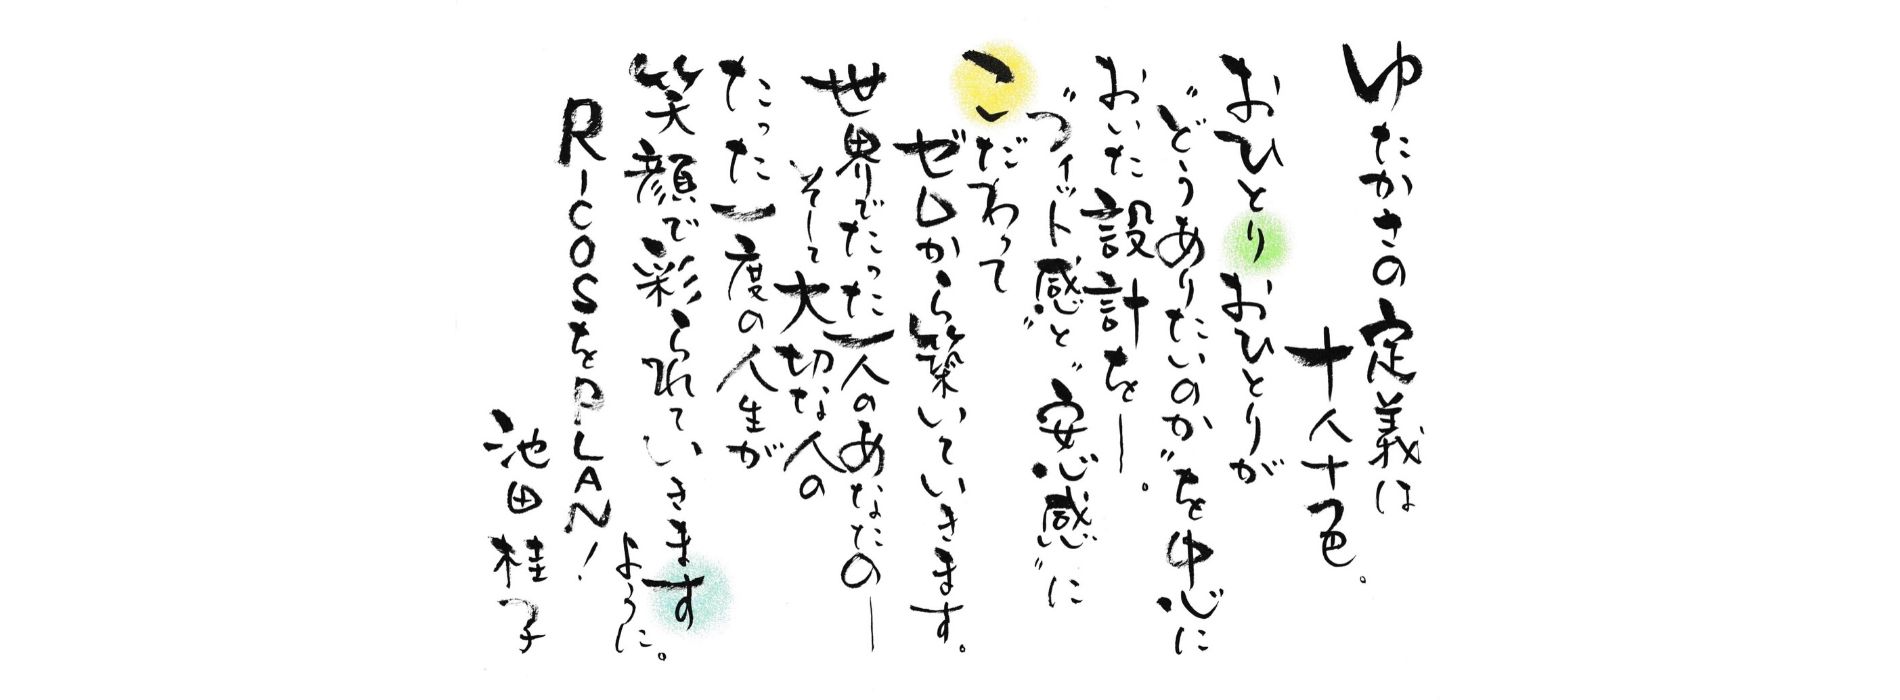 ゆたかさの定義は
十人十色。
おひとりおひとりが
〝どうありたいのか〟を中心に
おいた設計を―。
〝フィット感〟と〝安心感〟に
こだわって
ゼロから築いていきます。
世界でたった一人のあなたの―
そして大切な人の
たった一度の人生が
笑顔で彩られていきます
ように。
RICOSをPLAN!
池田桂子